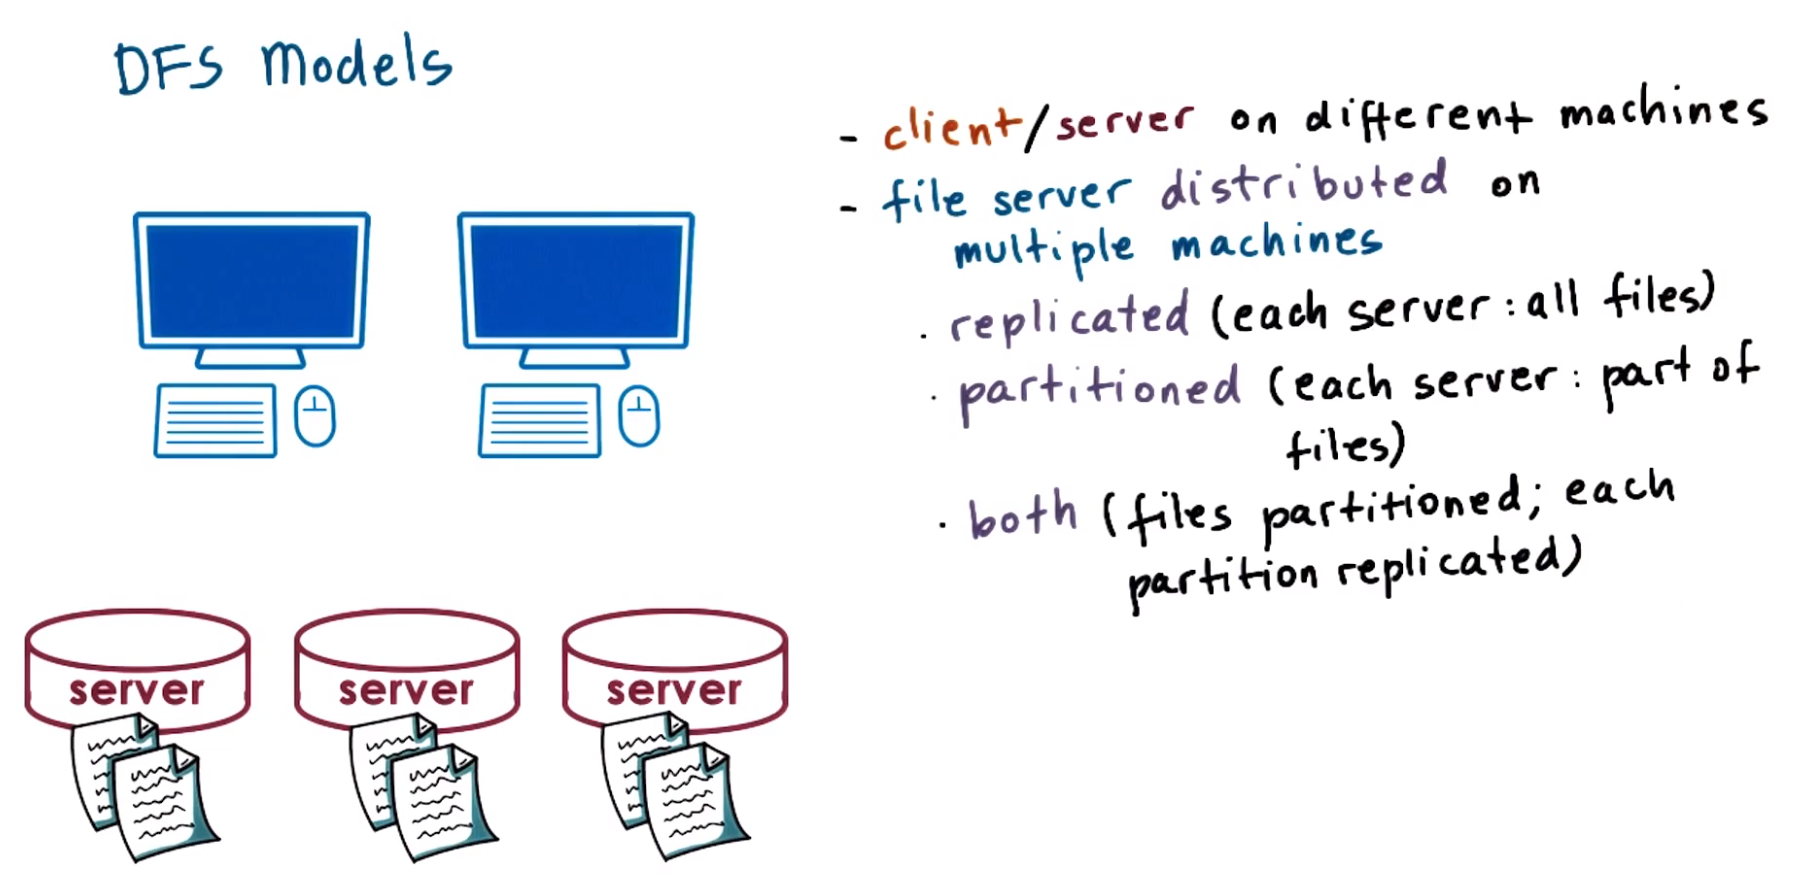 DFS Models
- client/server on different machines
- file server distributed on
multiple machines
. replicated (each server: all files)
. partitioned (each server: part of
files)
. both (files partitioned; each
partition replicated)
server
server
server